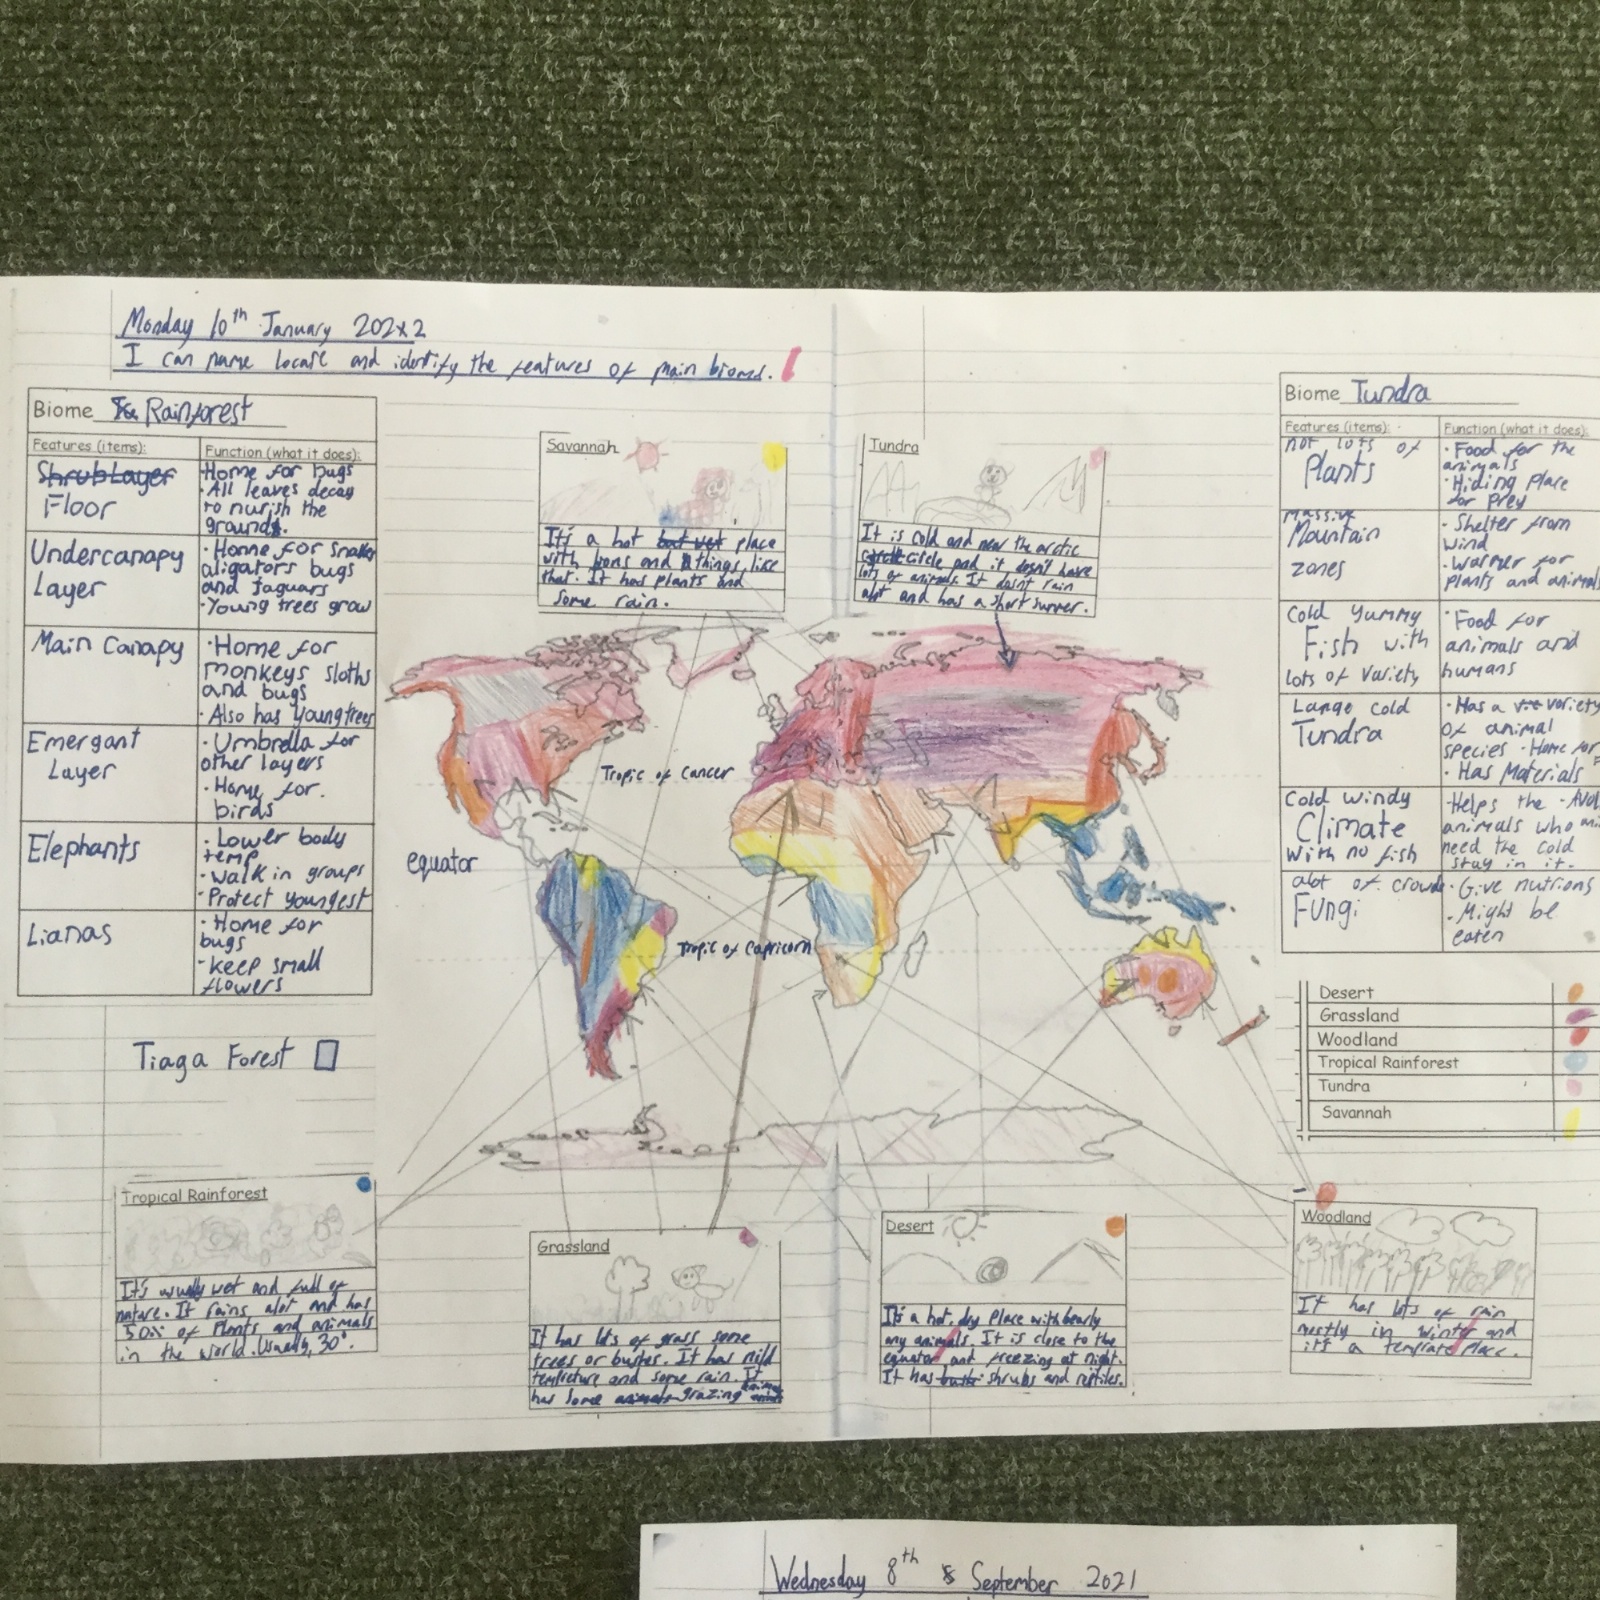 Monday 10th January 2022
I can name locate and identify the features of main biomes.
Biome Rainforest
Features (items):
Function (what it does):
Shrub Layer
Floor
Home for bugs
· All leaves decay
to nurish the
grounds.
Undercanapy
Layer
· Home for smaller
aligators bugs
and Jaguars
· Young trees grow
Main Canapy
· Home for
monkeys sloths
and bugs
· Also has young trees
Emergant
Layer
· Umbrella for
other layers
· Home for
birds
Elephants
· Lower body
temp
· walk in groups
· Protect youngest
Lianas
· Home for
bugs
- keep small
flowers
Tiaga Forest
Savannah
It's a hot but wet place
with lions and things like
that. It has plants and
some rain.
Tundra
It is cold and near the arctic
circle and it doesn't have
lots of animals. It doesn't rain
alot and has a short summer.
Tropic of Cancer
equator
Tropic of Capricorn
Biome Tundra
Features (items):
Function (what it does):
not lots of
Plants
· Food for the
animals
· Hiding place
for prey
Massive
Mountain
zones
· Shelter from
wind
· warmer for
plants and animals
Cold Yummy
Fish with
lots of variety
· Food for
animals and
humans
Large cold
Tundra
· Has a variety
of animal
species · Home for
· Has Materials
Cold windy
Climate
with no fish
· Helps the
animals who
need the cold
stay in it.
alot of crowd
Fungi
· Give nutrions
- Might be
eaten
Desert
Grassland
Woodland
Tropical Rainforest
Tundra
Savannah
Tropical Rainforest
It's usually wet and full of
nature. It rains alot and has
50% of Plants and animals
in the world. Usually, 30°.
Grassland
It has lots of grass some
trees or bushes. It has mild
temprature and some rain. It
has some animals grazing
Desert
It's a hot, dry place with bearly
any animals. It is close to the
equator and freezing at night.
It has shrubs and reptiles.
Woodland
It has lots of rain
mostly in winter and
it's a temprate place.
Wednesday 8th September 2021